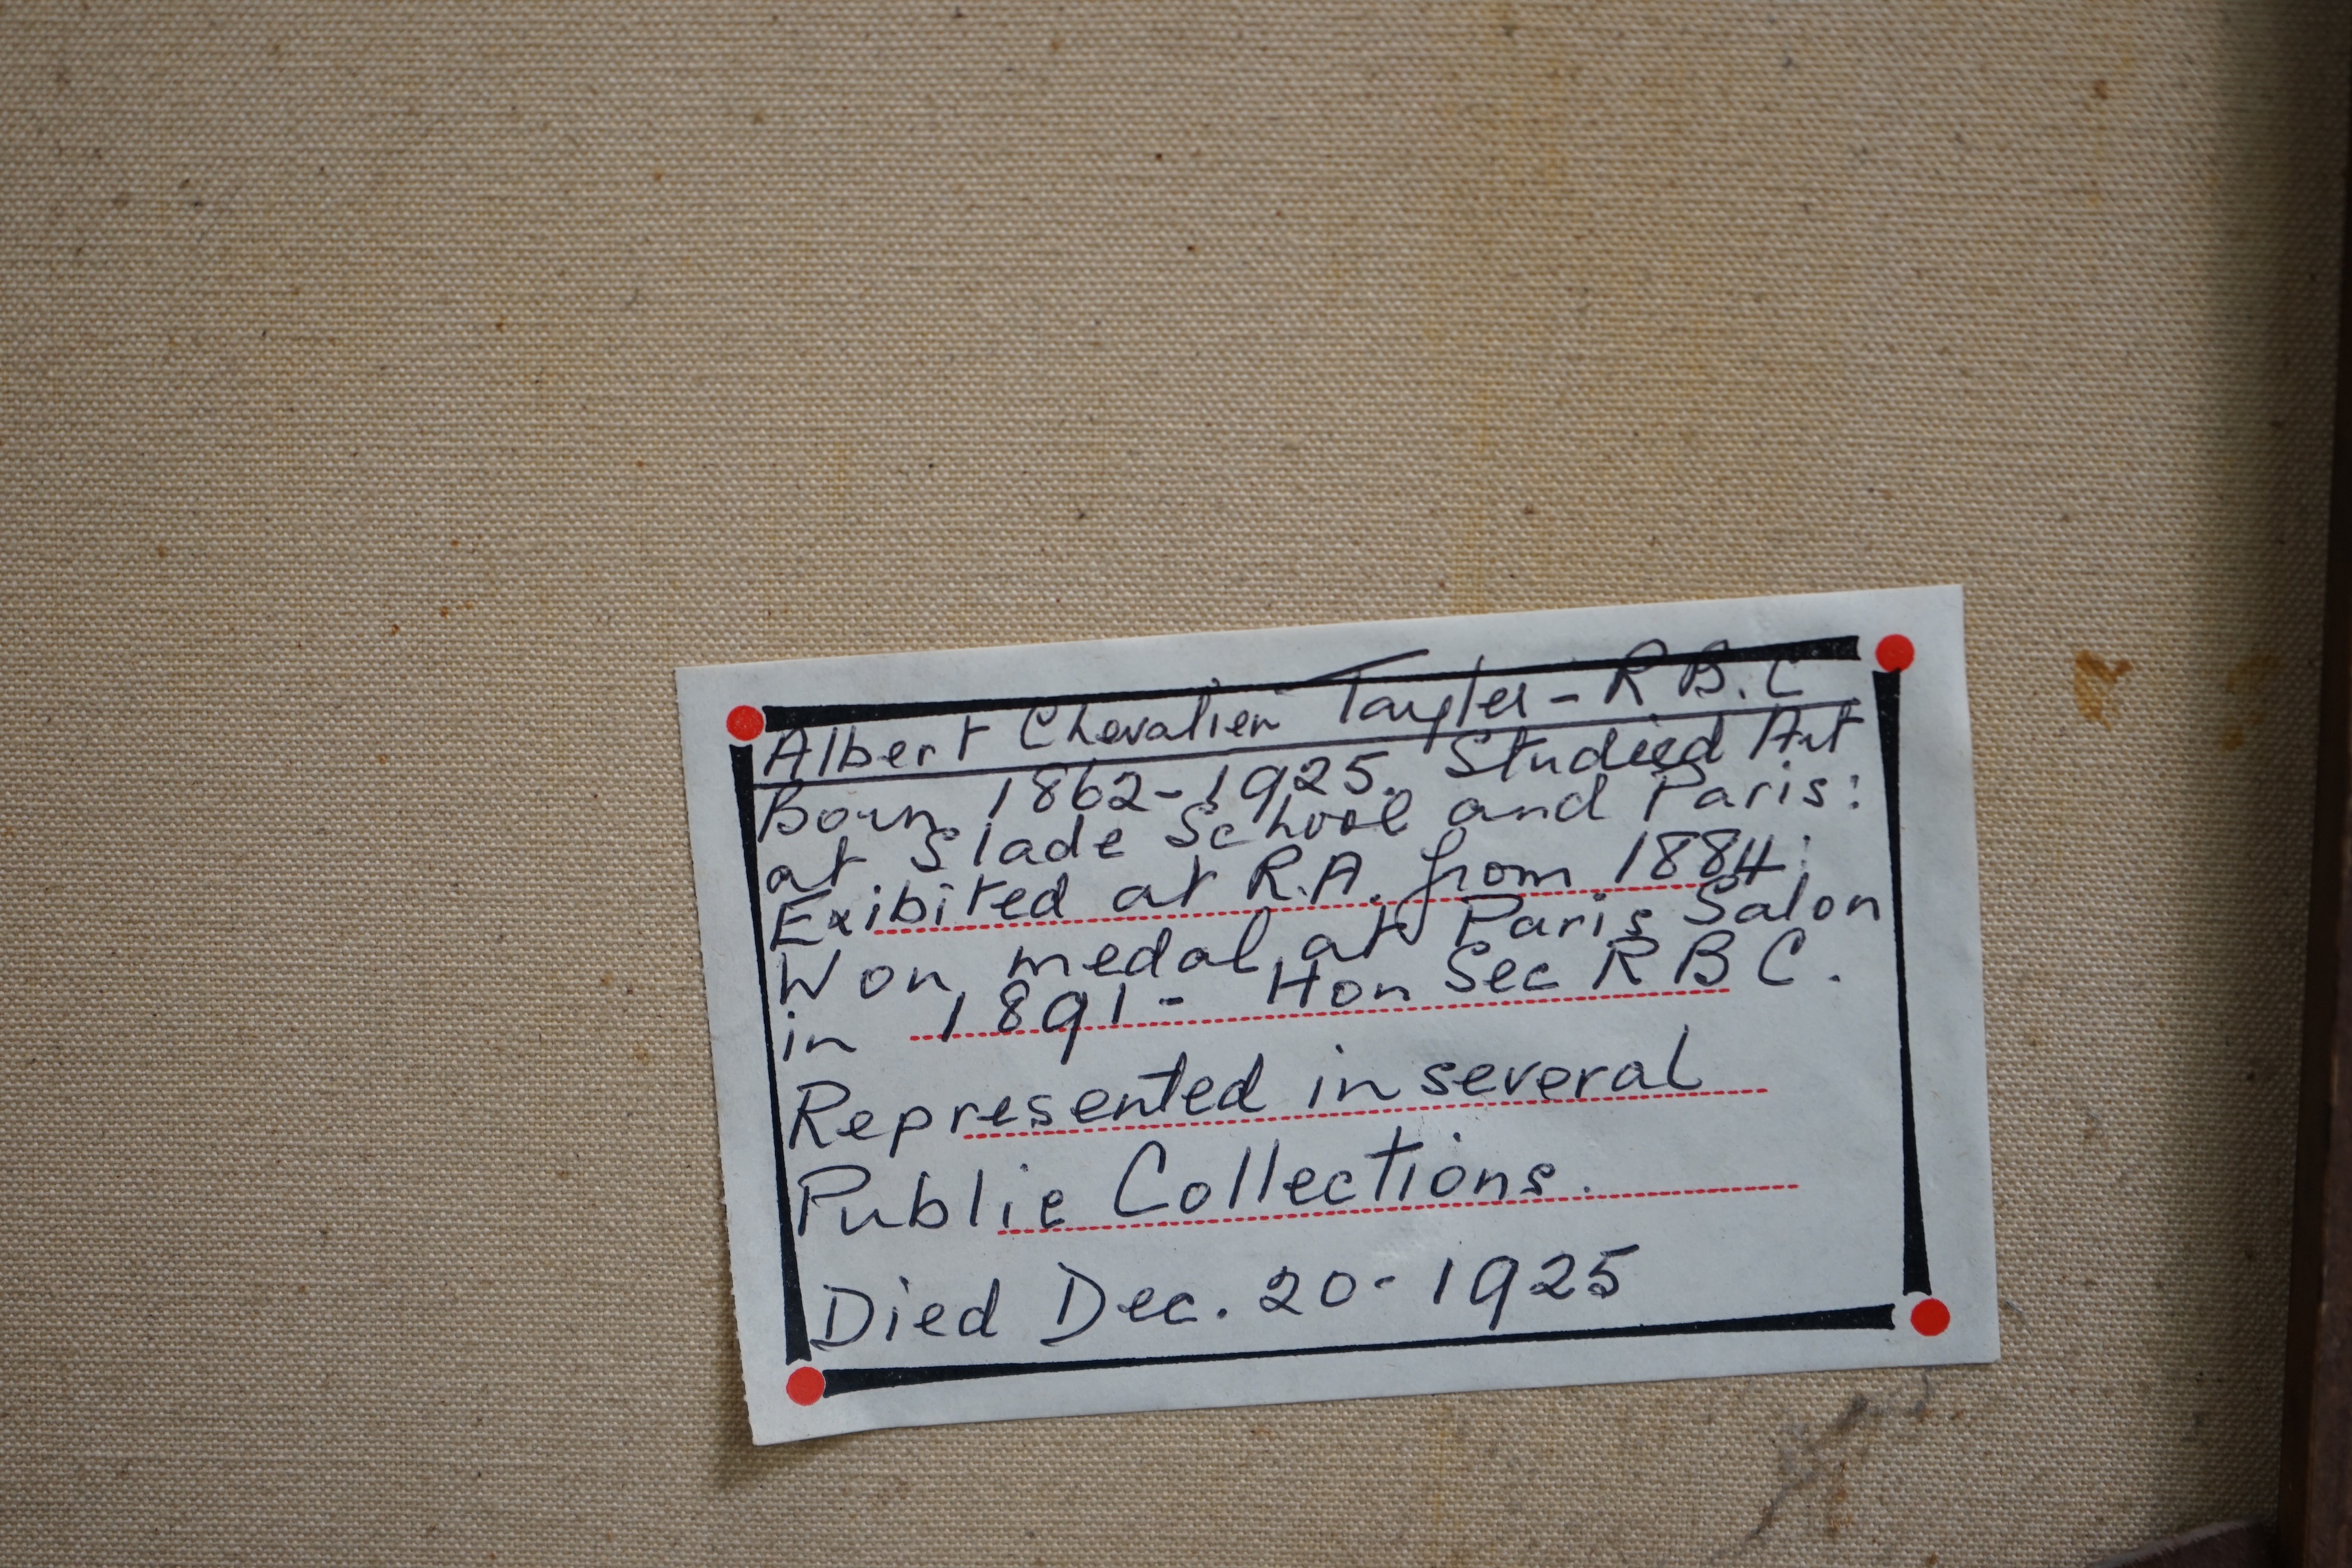 Albert Chevalier Tayler - R B. C
Born 1862-1925. Studied Art
at Slade School and Paris:
Exibited at R.A. from 1884:
Won medal at Paris Salon
in 1891 - Hon Sec R B C.
Represented in several
Public Collections.
Died Dec. 20-1925